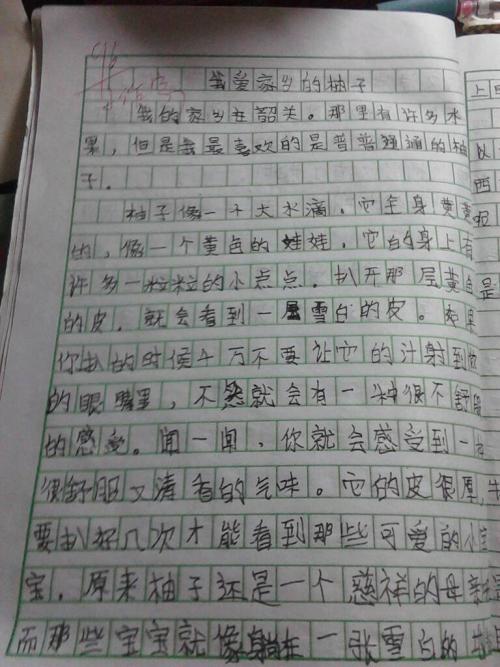 我爱家乡的柚子
我的家乡在韶关。那里有许多水
果，但是我最喜欢的是普普通通的柚
子。
柚子像一个大水滴，它全身黄黄
的，像一个黄色的娃娃，它的身上有
许多一粒粒的小点点。扒开那层黄色
的皮，就会看到一层雪白的皮。如果
你扒的时候千万不要让它的汁射到你
的眼睛里，不然就会有一种很不舒服
的感受。闻一闻，你就会感受到一
很舒服又清香的气味。它的皮很厚，
要扒好几次才能看到那些可爱的小宝
宝，原来柚子还是一个慈祥的母亲
而那些宝宝就像躺在一张雪白的
上
以
西
是